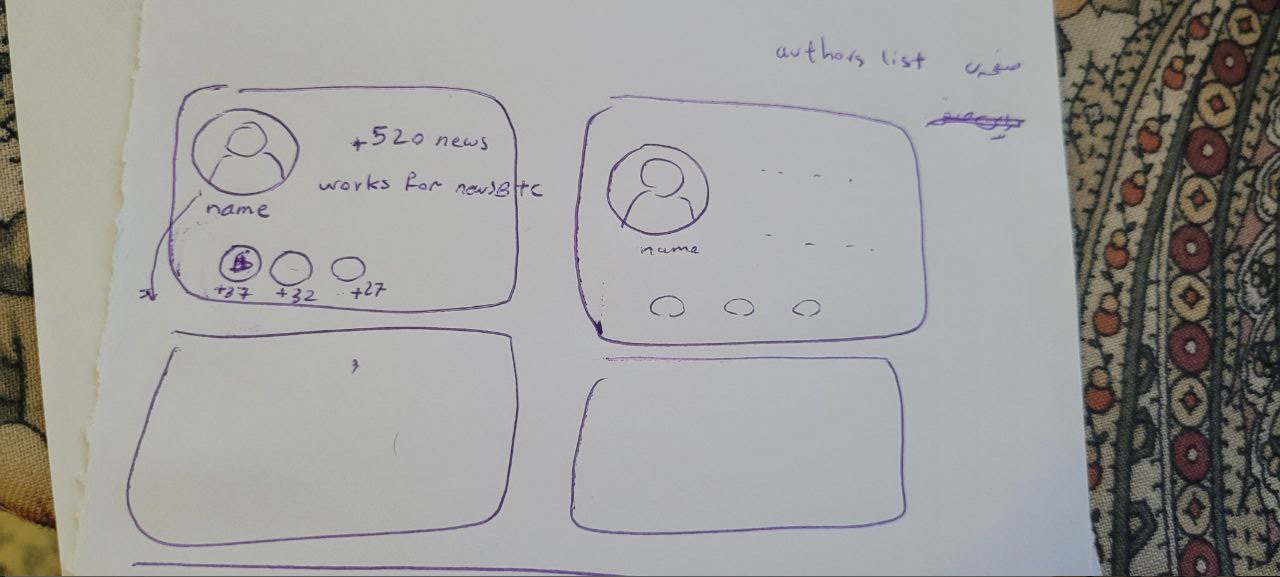 authors list صفحه
+520 news
works for newsBtc
name
+37 +32 +27
name